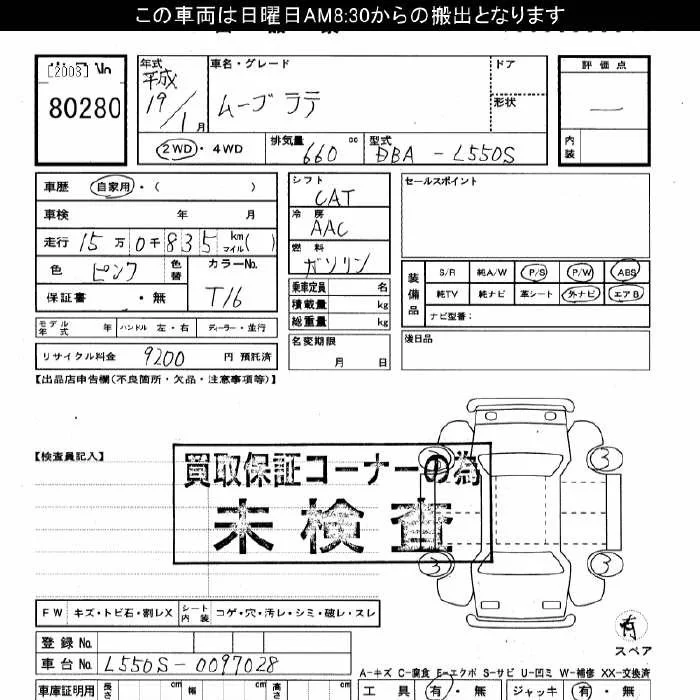 この車両は日曜日AM8:30からの搬出となります
[2003] No
80280
年式
平成
19/1月
車名・グレード
ムーブ ラテ
ドア
形状
評価点
—
内装
2WD・4WD
排気量
660 cc
型式
DBA - L550S
車歴 自家用・( )
車検 年 月
走行 15万0千835 km マイル( )
色 ピンク 色替
カラーNo.
T16
保証書 ・無
シフト
CAT
冷房
AAC
燃料
ガソリン
乗車定員 名
積載量 kg
総重量 kg
セールスポイント
装備品
S/R 純A/W P/S P/W ABS
純TV 純ナビ 革シート 外ナビ エアB
ナビ型番:
モデル年式 年 ハンドル 左・右 ディーラー・並行
名変期限
月 日
後日品
リサイクル料金 9200 円 預託済
【出品店申告欄(不良箇所・欠品・注意事項等)】
【検査員記入】
買取保証コーナーの為
未検査
3 3
3 3
有
スペア
FW キズ・トビ石・割レX シート内装 コゲ・穴・汚レ・シミ・破レ・スレ
登録No.
車台No. L550S-0097028
A-キズ C-腐食 E-エクボ S-サビ U-凹ミ W-補修 XX-交換済
車庫証明用 長さ cm 幅 cm 高さ cm
工具 有・無 ジャッキ 有・無